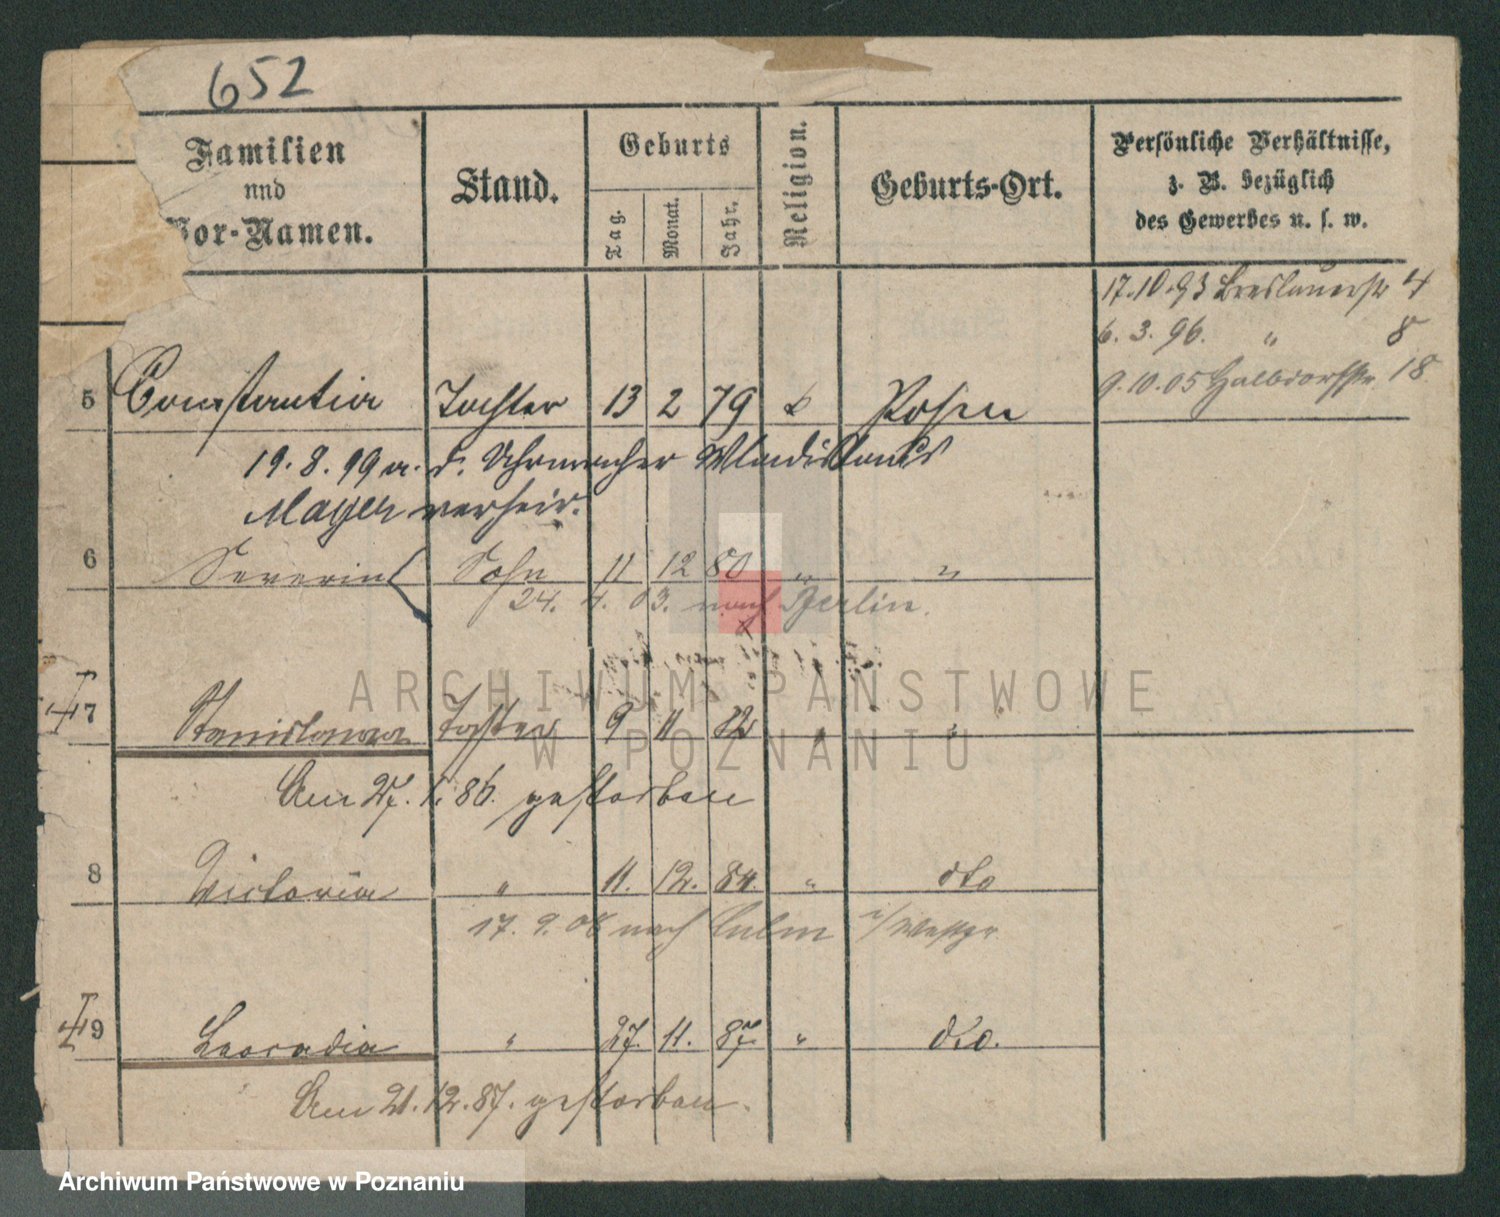 652
Familien
und
Vor-Namen.
Stand.
Geburts
Tag.
Monat.
Jahr.
Religion.
Geburts-Ort.
Persönliche Verhältnisse,
z. B. bezüglich
des Gewerbes u. s. w.
17.10.93 Breslauerstr 4
6. 3. 96. " 8
9.10.05 Halbdorfstr 18
5 Constantia Tochter 13 2 79 k Posen
19. 8. 99 a. d. Uhrmacher Wladislaus
Mayer verheir.
6 Severin Sohn 11 12 80 " "
24. 4. 03. nach Berlin.
7 Stanislawa Tochter 9 11 82 " "
Am 27. 1. 86. gestorben
8 Victoria " 11. 12. 84. " dto
17. 9. 06 nach Culm i/Westpr
9 Leocadia " 27. 11. 87. " dto.
Am 21. 12. 87. gestorben.
ARCHIWUM PAŃSTWOWE
W POZNANIU
Archiwum Państwowe w Poznaniu